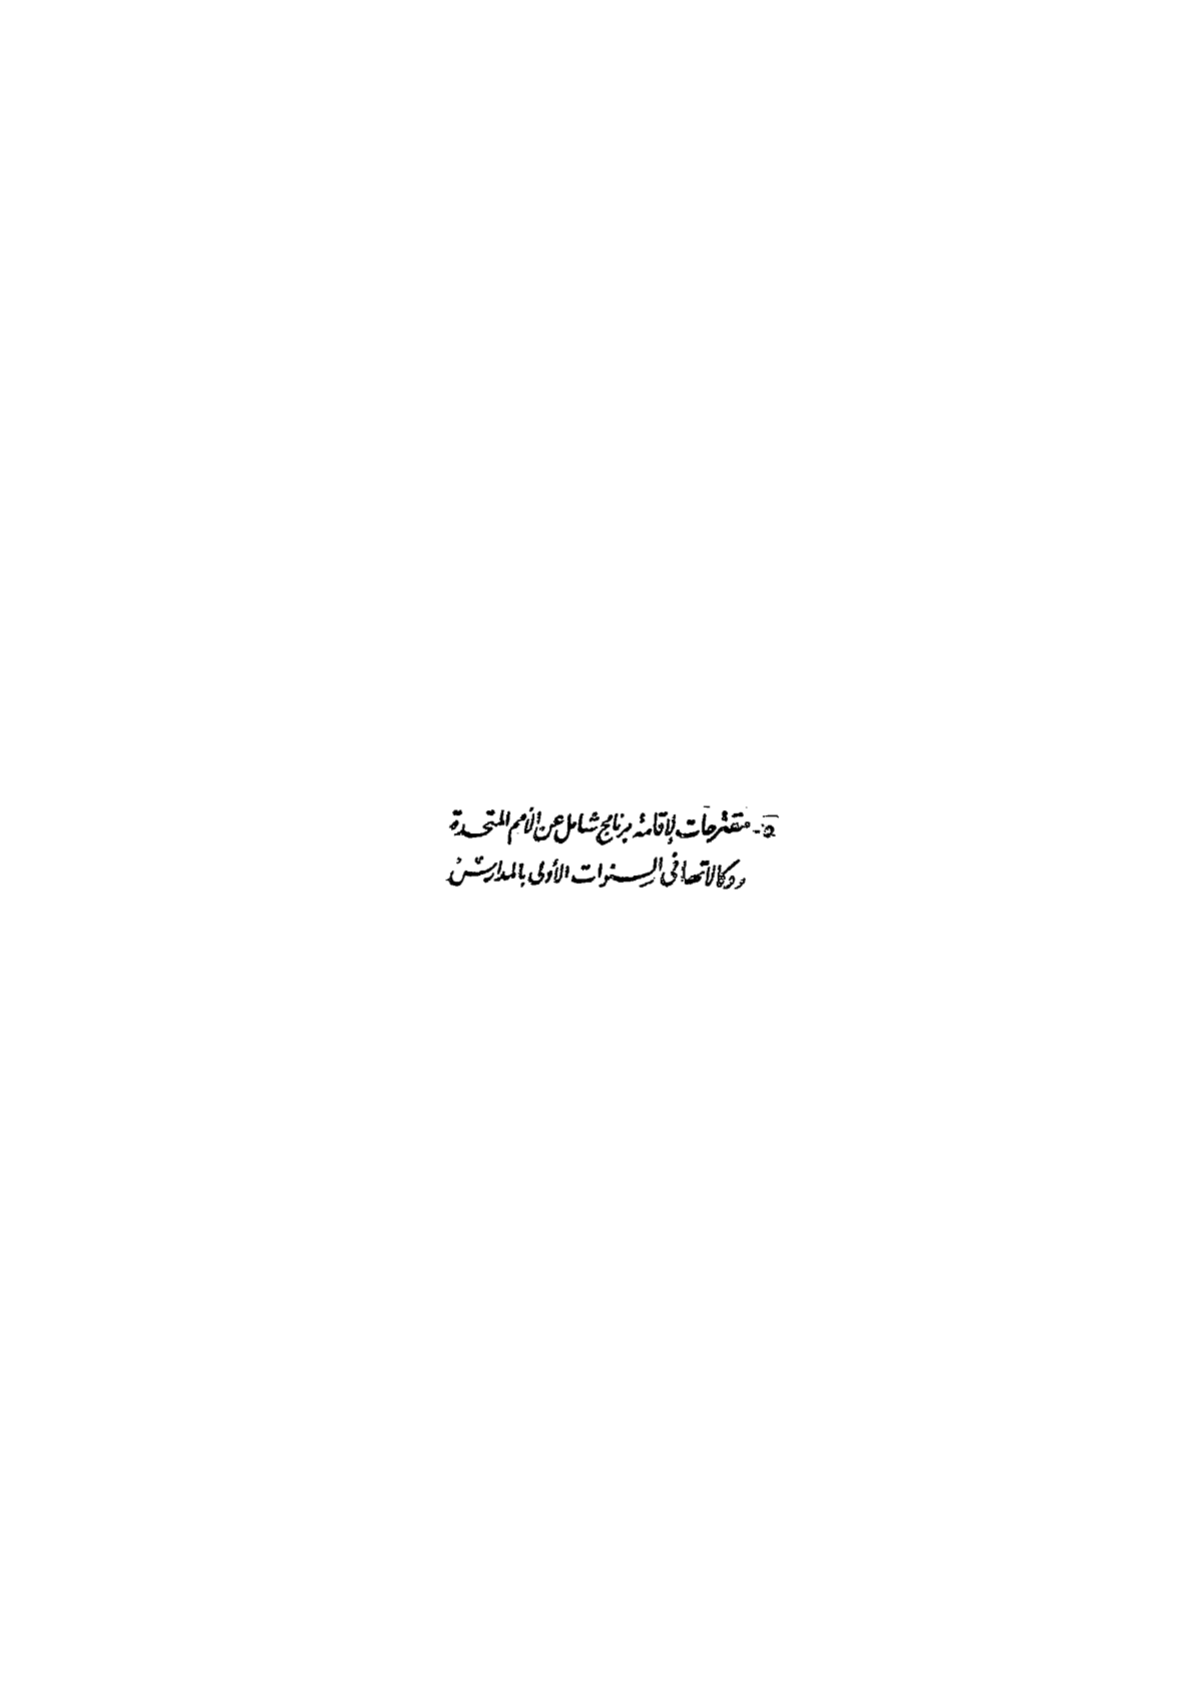 ٥- مقترحات لإقامة برنامج شامل عن الأمم المتحدة
ووكالاتها في السنوات الأولى بالمدارس